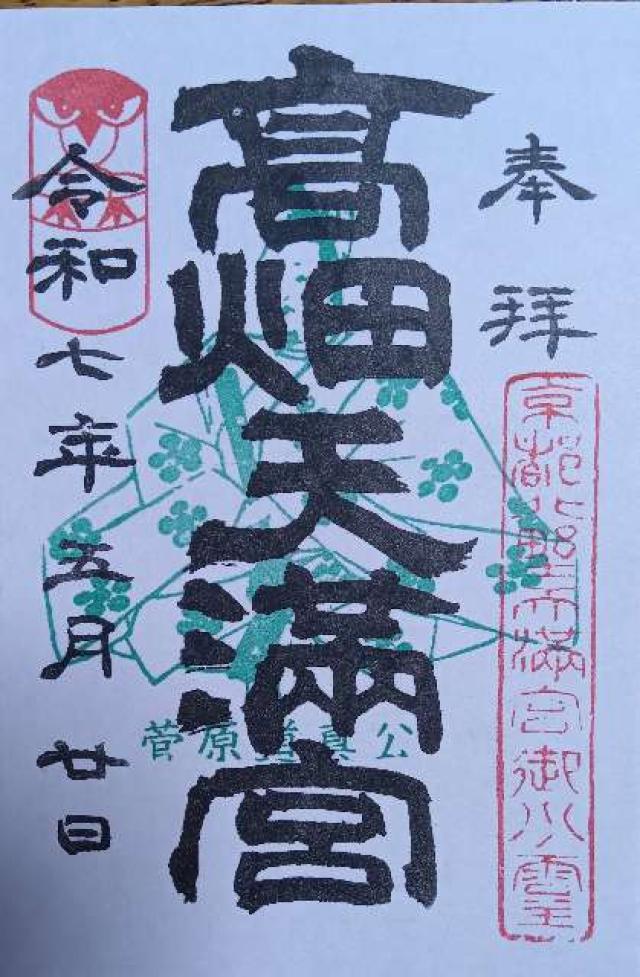 奉拝
京都北野天満宮御分霊
高畑天満宮
菅原道真公
令和七年五月廿日